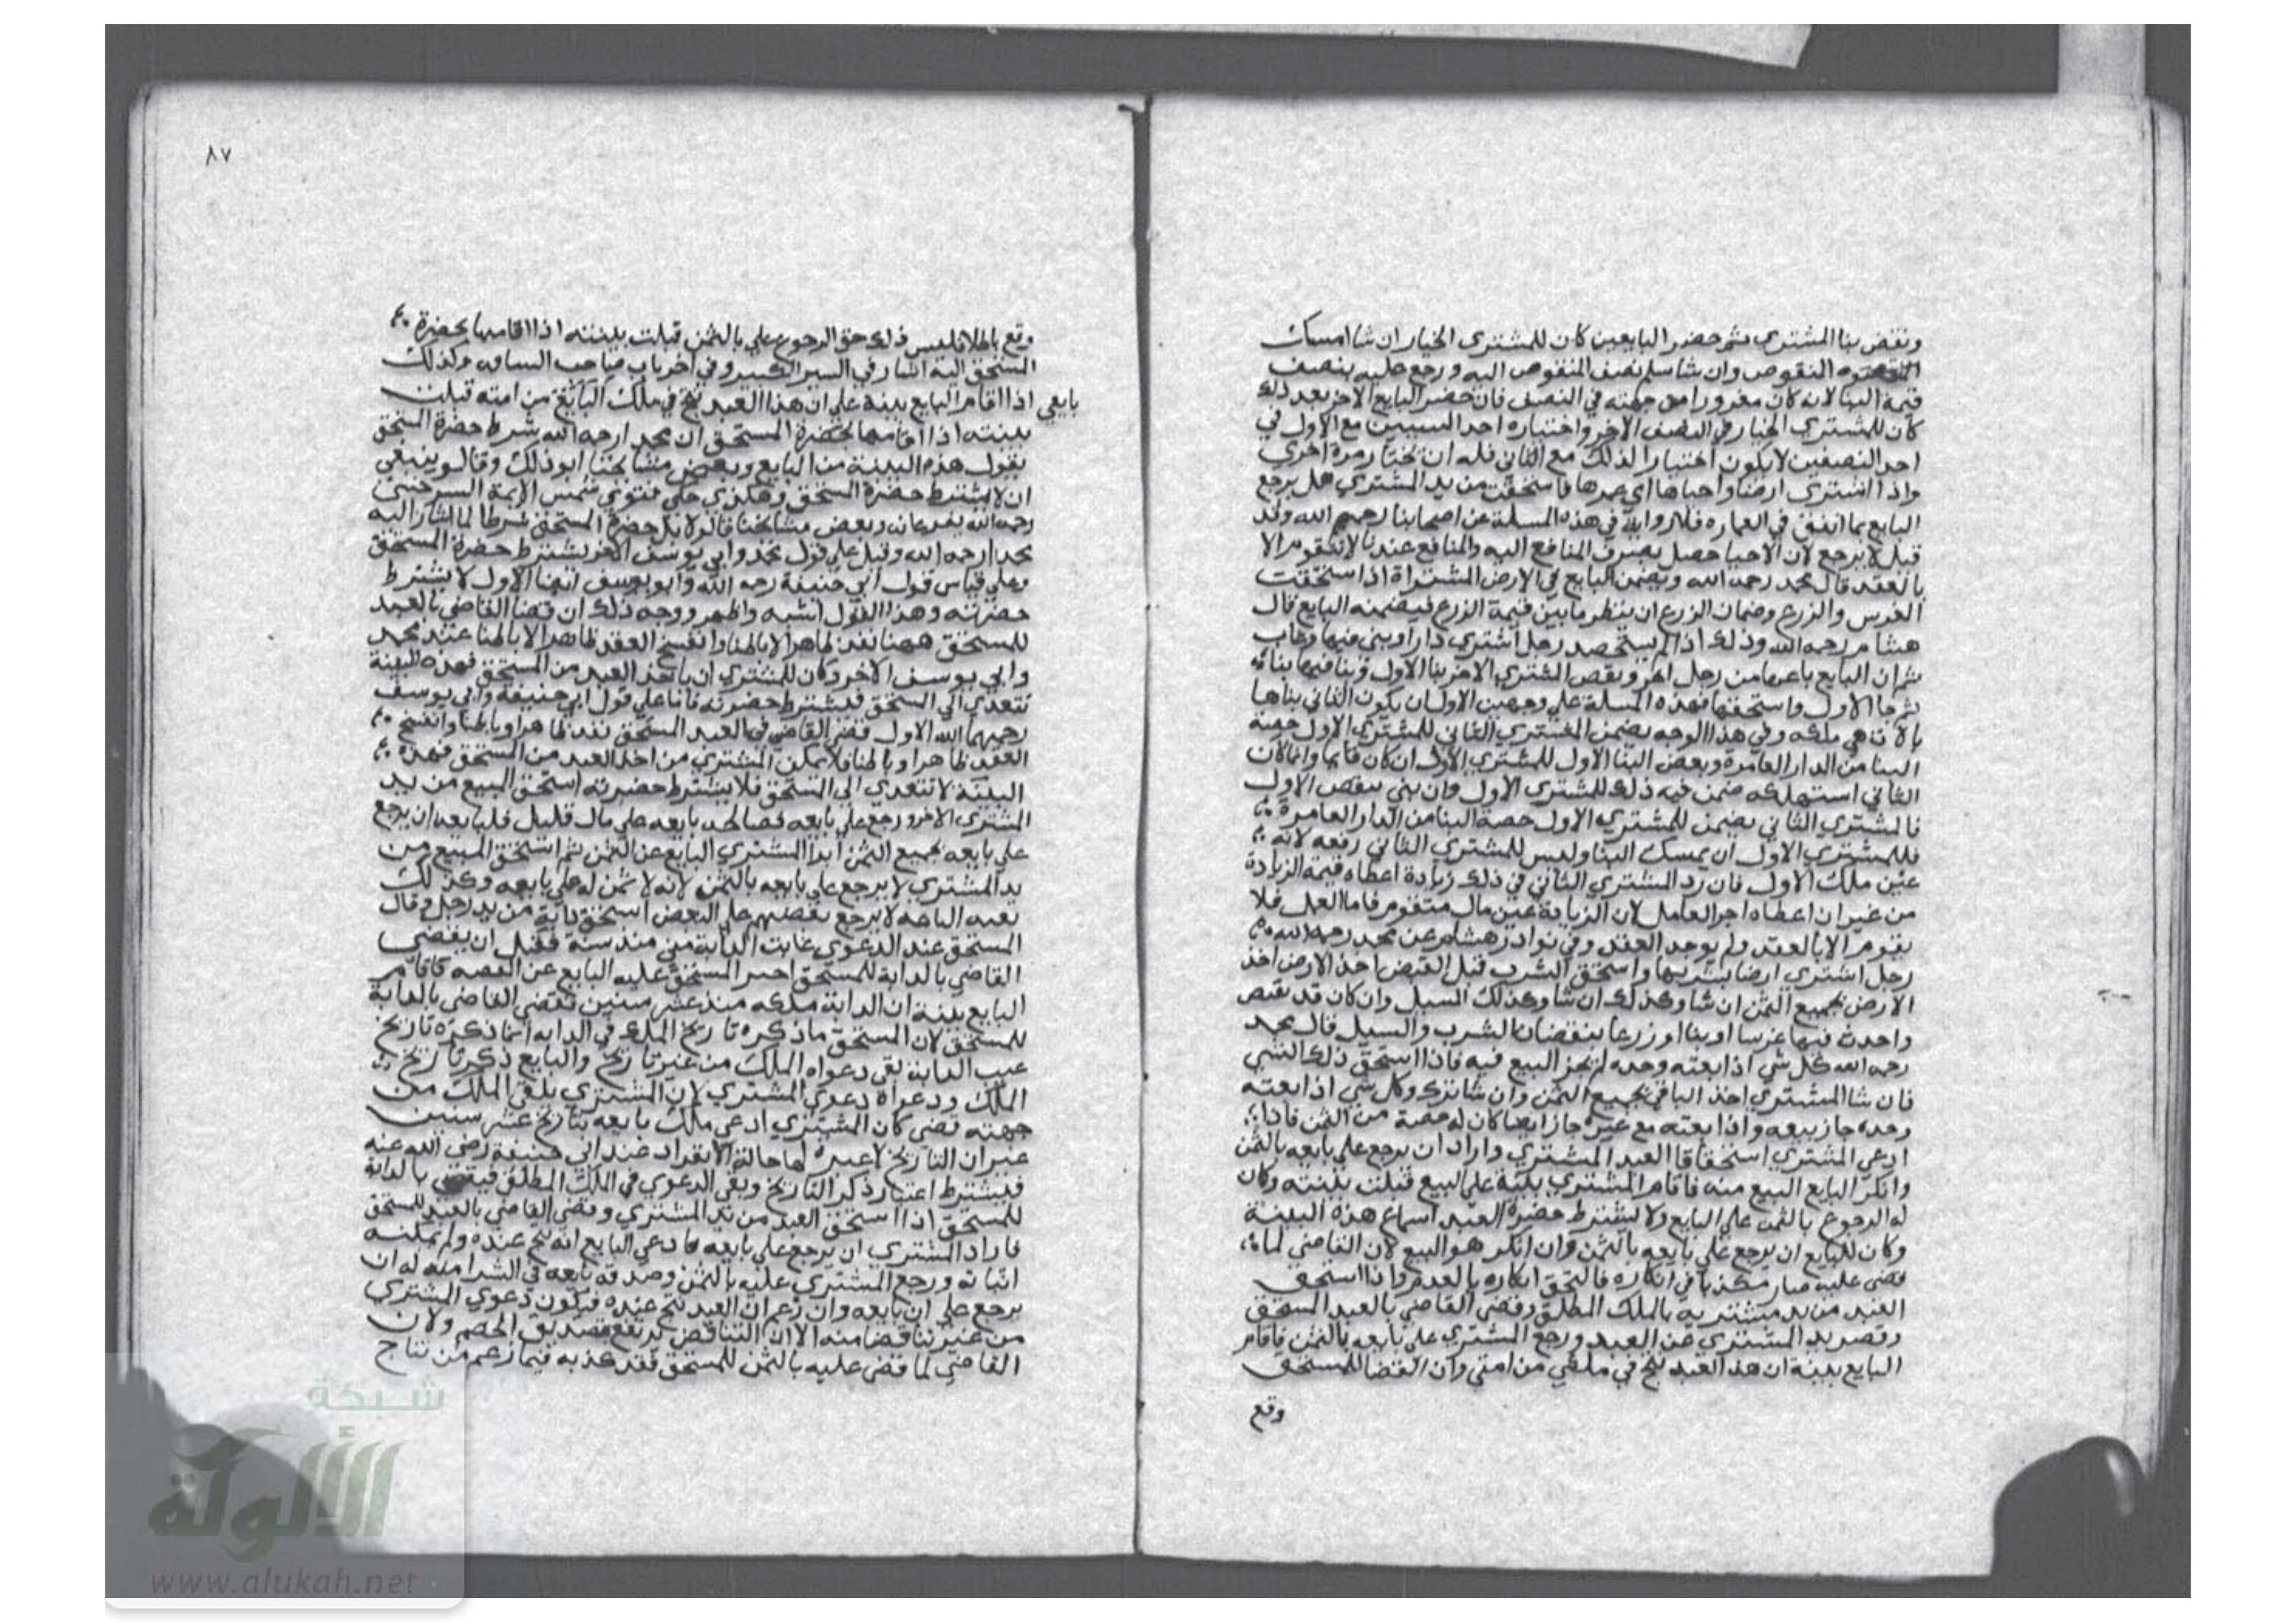 ونقض بنا المشتري ثم حضر البايعين كان للمشتري الخيار ان شا امسك
النقوص وان شا سلم نصف المنقوص اليه ورجع عليه بنصف
قيمة البنا لانه كان مغرورا من جهته في النصف فان حضر البايع الاخر بعد ذلك
كان للمشتري الخيار في النصف الاخر واختياره احد السببين مع الاول في
احد النصفين لا يكون اختيارا لذلك مع الثاني فله ان يختار مرة اخري
واذا اشتري ارضا واحياها اي عمرها فاستحقت من يد المشتري هل يرجع
البايع بما انفق في العماره فلا رواية في هذه المسلة عن اصحابنا رحمهم الله وقد
قيل لا يرجع لان الاحيا حصل بصرف المنافع اليه والمنافع عندنا لا تتقوم الا
بالعقد قال محمد رحمه الله ويضمن البايع في الارض المشتراة اذا استحقت
الغرس والزرع وضمان الزرع ان ينظر ما بين قيمة الزرع فيضمنه البايع قال
هشام رحمه الله وذلك اذا لم يستحصد رجل اشتري دارا وبني فيها وغاب
ثم ان البايع باعها من رجل اخر ونقض المشتري الاخر بنا الاول وبنا فيها بناء
ثم جا الاول واستحقها فهذه المسلة علي وجهين الاول ان يكون الثاني بناها
بالات هي ملكه وفي هذا الوجه يضمن المشتري الثاني للمشتري الاول حصة
البنا من الدار العامرة وبعض البنا الاول للمشتري الاول ان كان قايما وان كان
الثاني استهلكه ضمن قيمة ذلك للمشتري الاول وان بني بنقض الاول
فالمشتري الثاني يضمن للمشتري الاول حصة البنا من الدار العامرة
فللمشتري الاول ان يمسك البنا وليس للمشتري الثاني رفعه لانه
عين ملك الاول فان زد المشتري الثاني في ذلك زيادة اعطاه قيمة الزيادة
من غير ان اعطاه اجر العامل لان الزيادة عين مال متقوم فاما العمل فلا
يتقوم الا بالعقد ولم يوجد العقد وفي نوادر هشام عن محمد رحمه الله
رجل اشتري ارضا بشربها واستحق الشرب قبل القبض اخذ الارض اخذ
الارض بجميع الثمن ان شا وكذلك ان شا وكذلك السيل وان كان قد نقص
واحدث فيها غرسا او بنا او زرعا بنقصان الشرب والسيل قال محمد
رحمه الله كل شي اذا بعته وحده لم يجز البيع فيه فاذا استحق ذلك الشي
فان شا المشتري اخذ الباقي بجميع الثمن وان شا تركه وكل شي اذا بعته
وحده جاز بيعه واذا بعته مع غيره جاز ايضا كان له حصة من الثمن فاذا
ادعي المشتري استحقاقا العبد المشتري واراد ان يرجع علي بايعه بالثمن
وانكر البايع البيع منه فاقام المشتري بينة علي البيع قبلت بينته وكان
له الرجوع بالثمن علي البايع ولا يشترط حضرة العبد لسماع هذه البينة
وكان للبايع ان يرجع علي بايعه بالثمن وان انكر هو البيع لان القاضي لما
قضي عليه صار مكذبا في انكاره فالتحق انكاره بالعدم واذا استحق
العبد من يد مشتريه بالملك المطلق وقضي القاضي بالعبد المستحق
وقصر يد المشتري عن العبد ورجع المشتري علي بايعه بالثمن فاقام
البايع بينة ان هذا العبد نتج في ملكي من امتي وان القضا للمستحق
وقع
٨٧
وقع باطلا فليس ذلك حق الرجوع علي بالثمن قبلت بينته اذا اقامها بحضرة
المستحق اليه اشار في السير الكبير وفي اخر باب وكذلك
بايعي اذا اقام البايع بينة علي ان هذا العبد نتج في ملك البايع من امته قبلت
بينته اذا اقامها بحضرة المستحق ان محمدا رحمه الله شرط حضرة المستحق
بقول هذه البينة من البايع وبعض مشايخنا ابو ذلك وقالو ينبغي
ان لا يشترط حضرة المستحق وهكذي حكي فتوي شمس الايمة السرخسي
رحمه الله وبعض مشايخنا قالو لا بل حضرة المستحق شرطا لما اشار اليه
محمدا رحمه الله وقيل علي قول محمد وابي يوسف الاخر يشترط حضرة المستحق
وعلي قياس قول ابي حنيفة رحمه الله وابو يوسف الاول لا يشترط
حضرته وهذا القول اشبه واظهر ووجه ذلك ان قضا القاضي بالعبد
للمستحق ههنا نفذ ظاهرا لا باطنا وانفسخ العقد ظاهرا لا باطنا عند محمد
وابي يوسف الاخر وكان للمشتري ان ياخذ العبد من المستحق فهذه البينة
تتعدي الي المستحق فيشترط حضرته فاما علي قول ابي حنيفة وابي يوسف
رحمهما الله الاول قضا القاضي في العبد المستحق نفذ ظاهرا وباطنا وانفسخ
العقد ظاهرا وباطنا فلا يمكن المشتري من اخذ العبد من المستحق فهذه
البينة لا تتعدي الي المستحق فلا يشترط حضرته استحق المبيع من يد
المشتري الاخر ورجع علي بايعه فصالحه بايعه علي مال قليل فلبايعه ان يرجع
علي بايعه بجميع الثمن ابرا المشتري البايع عن الثمن ثم استحق المبيع من
يد المشتري لا يرجع علي بايعه بالثمن لانه لا ثمن له علي بايعه وكذلك
بقية الباعة لا يرجع بعضهم علي البعض استحق دابة من يد رجل وقال
المستحق عند الدعوي غابت الدابة مني منذ سنة فقبل ان يقضي
القاضي بالدابة للمستحق اخبر المستحق عليه البايع عن القصه فاقام
البايع بينة ان الدابة ملكه منذ عشر سنين فقضي القاضي بالدابة
للمستحق لان المستحق ما ذكره تاريخ الملك في الدابه انما ذكره تاريخ
عيب الدابة بقي دعواه الملك من غير تاريخ والبايع ذكر تاريخ
الملك ودعواه دعوي المشتري لان المشتري يلقي الملك من
جهته قضي كان المشتري ادعي ملك بايعه بتاريخ عشر سنين
غير ان التاريخ لا عبرة لها حالة الانفراد عند ابي حنيفة رضي الله عنه
فيشترط اعتبار ذكر التاريخ وبقي الدعوي في الملك المطلق فيقضي بالدابة
للمستحق اذا استحق العبد من يد المشتري وقضي القاضي بالعبد للمستحق
فاراد المشتري ان يرجع علي بايعه فادعي البايع انه نتج عنده ولم يمكنه
اثباته ورجع المشتري عليه بالثمن وصدقه بايعه في الشرا منه له ان
يرجع علي ان بايعه وان زعم ان العبد نتج عنده فيكون دعوي المشتري
من غير تناقضا منه الا ان التناقض يرتفع بتصديق الخصم ولان
القاضي لما قضي عليه بالثمن للمستحق فقد كذبه فيما زعم من نتاج
شبكة
الألوكة
www.alukah.net